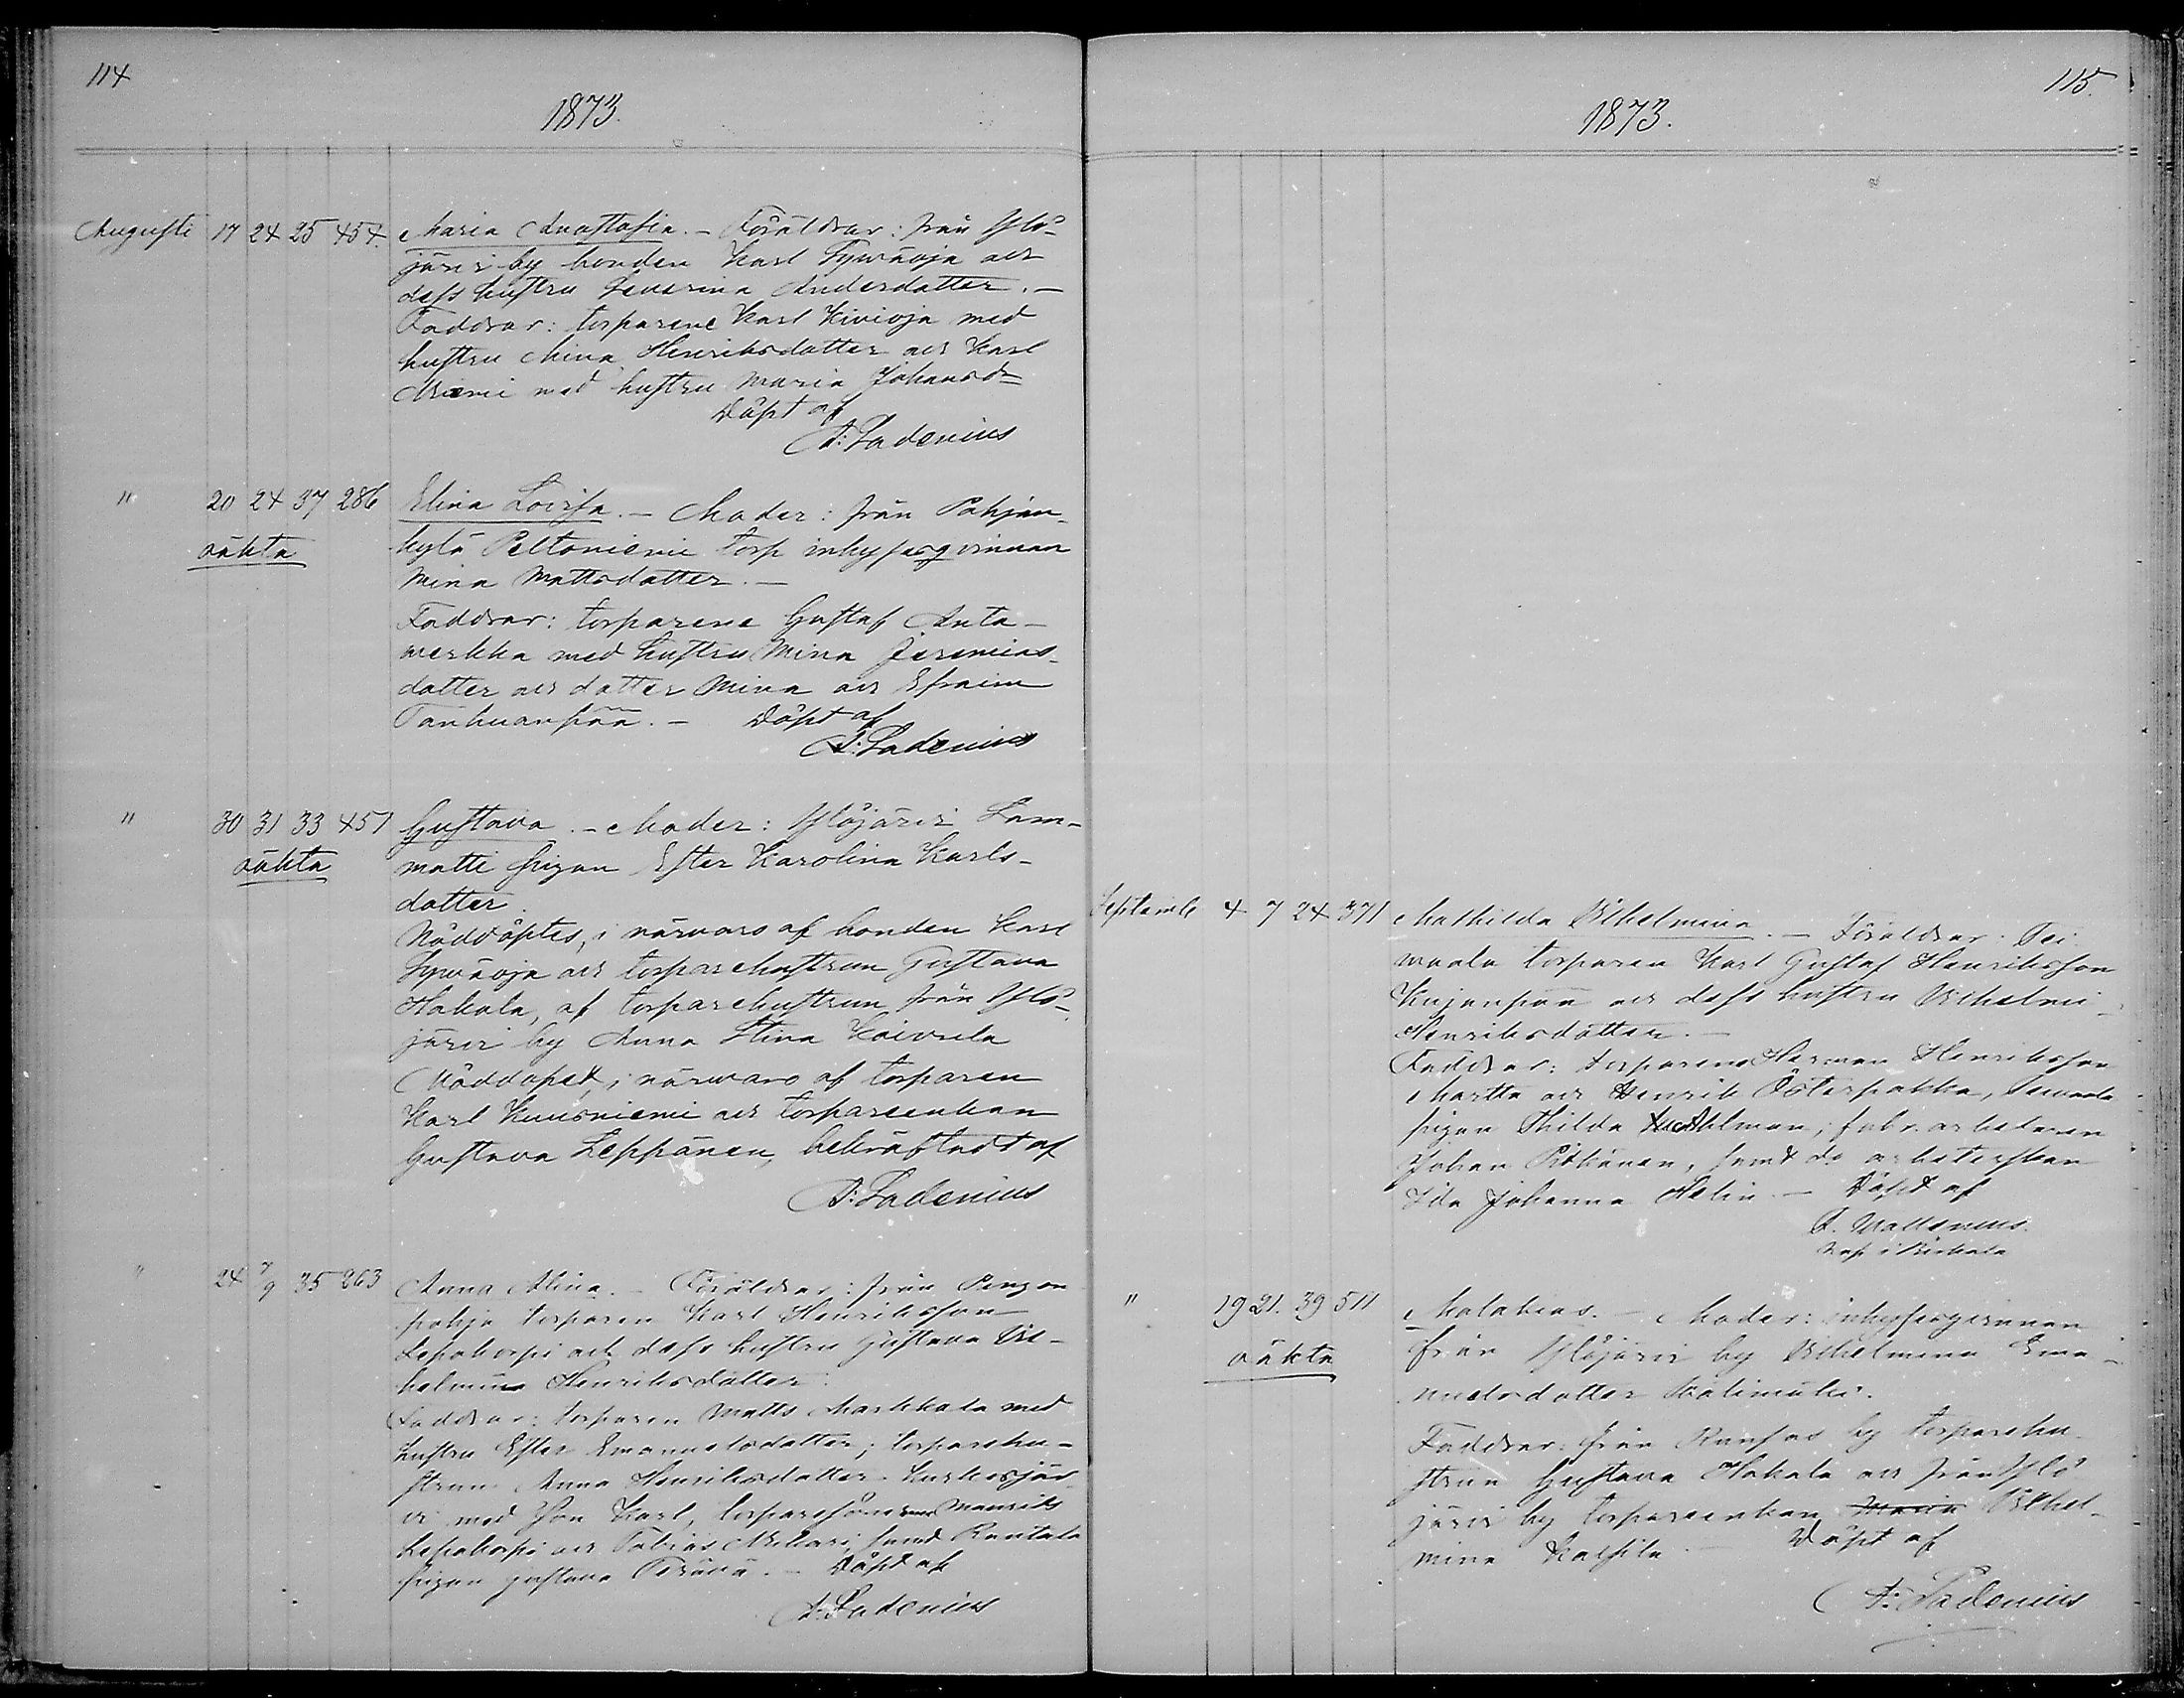 114
1873.
Augusti 17 24 25 454. Maria Anastasia. - Föräldrar: från Ylö-
järvi by bonden Karl Tyrväoja och
dess hustru Severina Andersdotter. -
Faddrar: torparene Karl Kivioja med
hustru Mina Henriksdotter och Karl
Niemi med hustru Maria Johansdr
Döpt af
A: Ladenius
" 20 24 37 286 Elina Lovisa. - Moder: från Pohjan-
oäkta kylä Peltoniemi torp inhysesqvinnan
Mina Mattsdotter. -
Faddrar: torparene Gustaf Anta-
werkka med hustru Mina Jeremias-
dotter och dotter Mina och Efraim
Tanhuanpää. - Döpt af
A: Ladenius
" 30 31 33 457 Gustava. - Moder: Ylöjärvi Lam-
oäkta matti pigan Ester Karolina Karls-
dotter.
Nöddöptes, i närvaro af bonden Karl
Tyrväoja och torparehustrun Gustava
Hakala, af torparehustrun från Ylö-
järvi by Anna Stina Koivula
Nöddopet, i närvaro af torparen
Karl Kuusniemi och torpareenkan
Gustava Leppänen, bekräftadt af
A: Ladenius
" 24 7/9 35 263 Anna Alina. - Föräldrar: från Pengon
pohja torparen Karl Henriksson
Lepokorpi och dess hustru Gustava Vil-
helmina Henriksdotter.
Faddrar: torparen Matts Markkala med
hustru Ester Emanuelsdotter; torparehu-
strun Anna Henriksdotter Kurkisjär
vi med son Karl, torparesönerne Maurits
Lepokorpi och Tobias Mikari, samt Rantala
pigan Gustava Perävä. - Döpt af
A: Ladenius
115.
1873.
Septemb 4 7 24 371 Mathilda Vilhelmina. - Föräldrar: Tei
waala torparen Karl Gustaf Henriksson
Kujanpää och dess hustru Vilhelmi-
Henriksdotter. -
Faddrar: torparene Herman Henriksson
Martta och Henrik Österpakka,
pigan Thilda Ahlman; fabr. arbetaren
Johan Pitkänen, samt do arbeterskan
Ida Johanna Helin. - Döpt af
A. Wallenius
Kap. i Birkala
" 19 21. 39 511 Malakias. - Moder: inhysesqvinnan
oäkta från Ylöjärvi by Vilhelmina Ema-
nuelsdotter Kalimäki.
Faddrar: från Runsas by torparehu-
strun Gustava Hakala och från Ylö
järvi by torpareenkan Maria Vilhel-
mina Kaipila - Döpt af
A: Ladenius